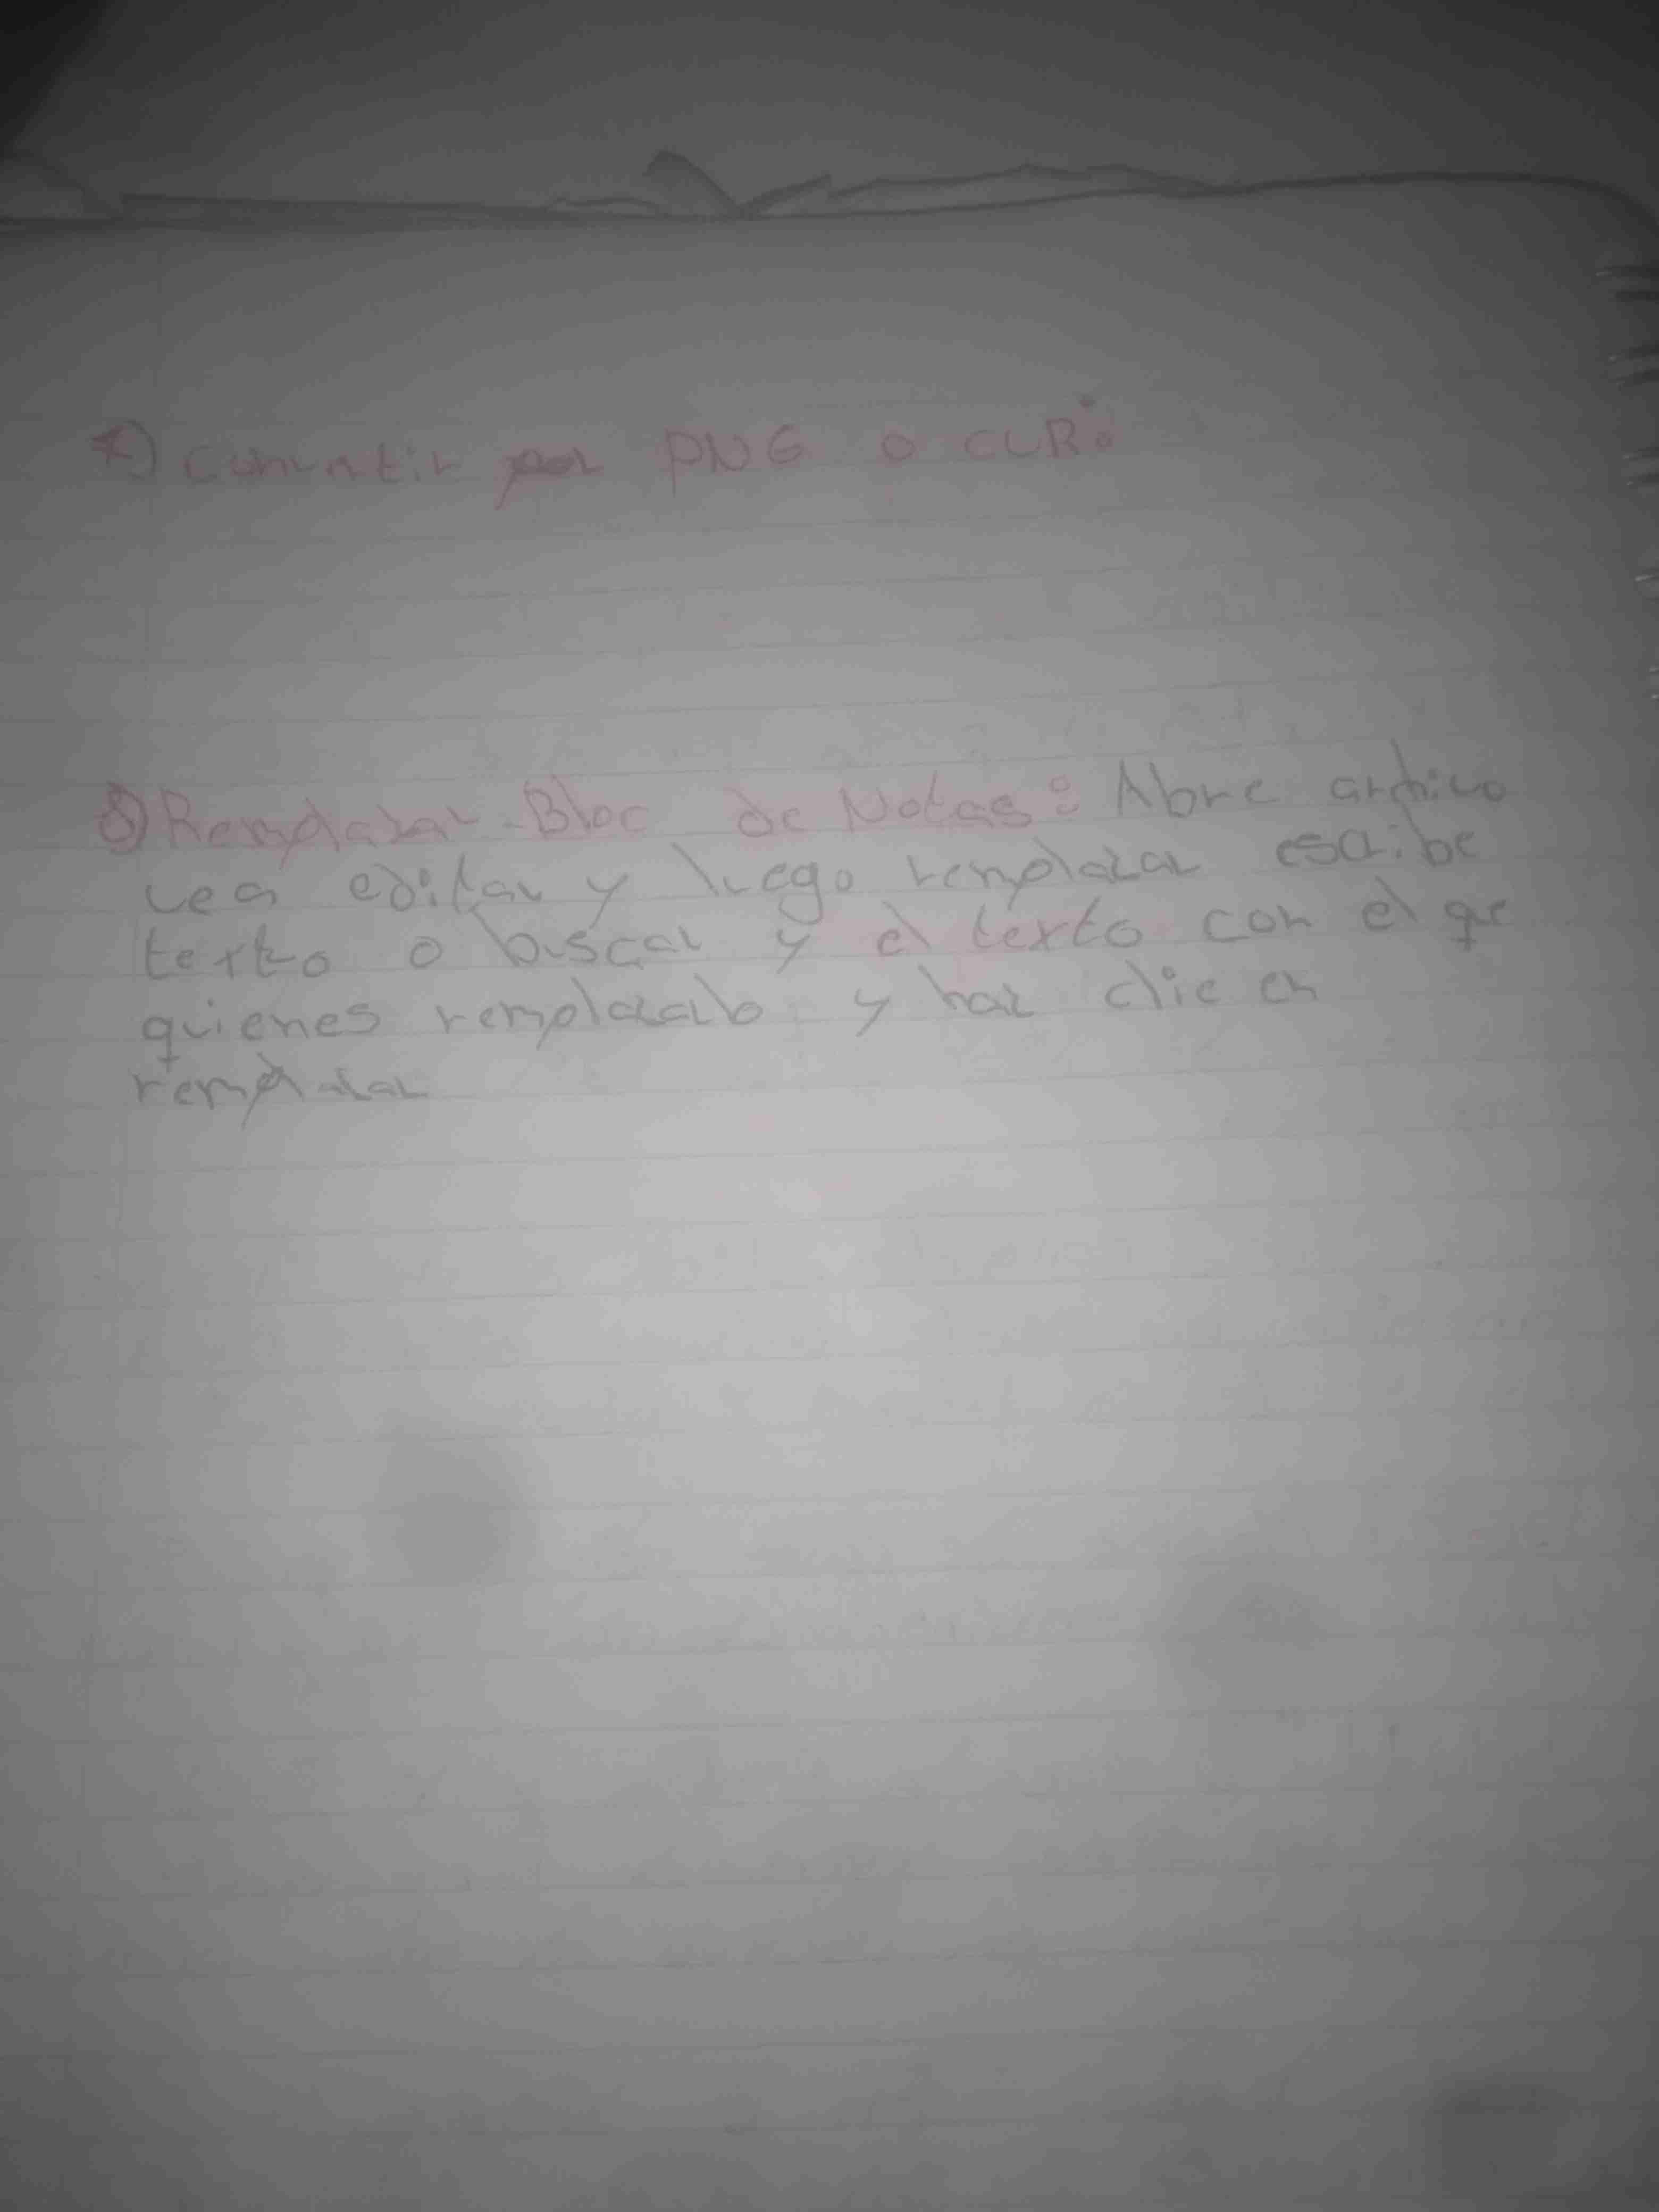 7) PNG o CLR:
8) Remplazar Bloc de Notas: Abre archivo
vea editar y luego remplazar escribe
texto o buscar y el texto con el que
quienes remplazalo y haz clic en
remplazar